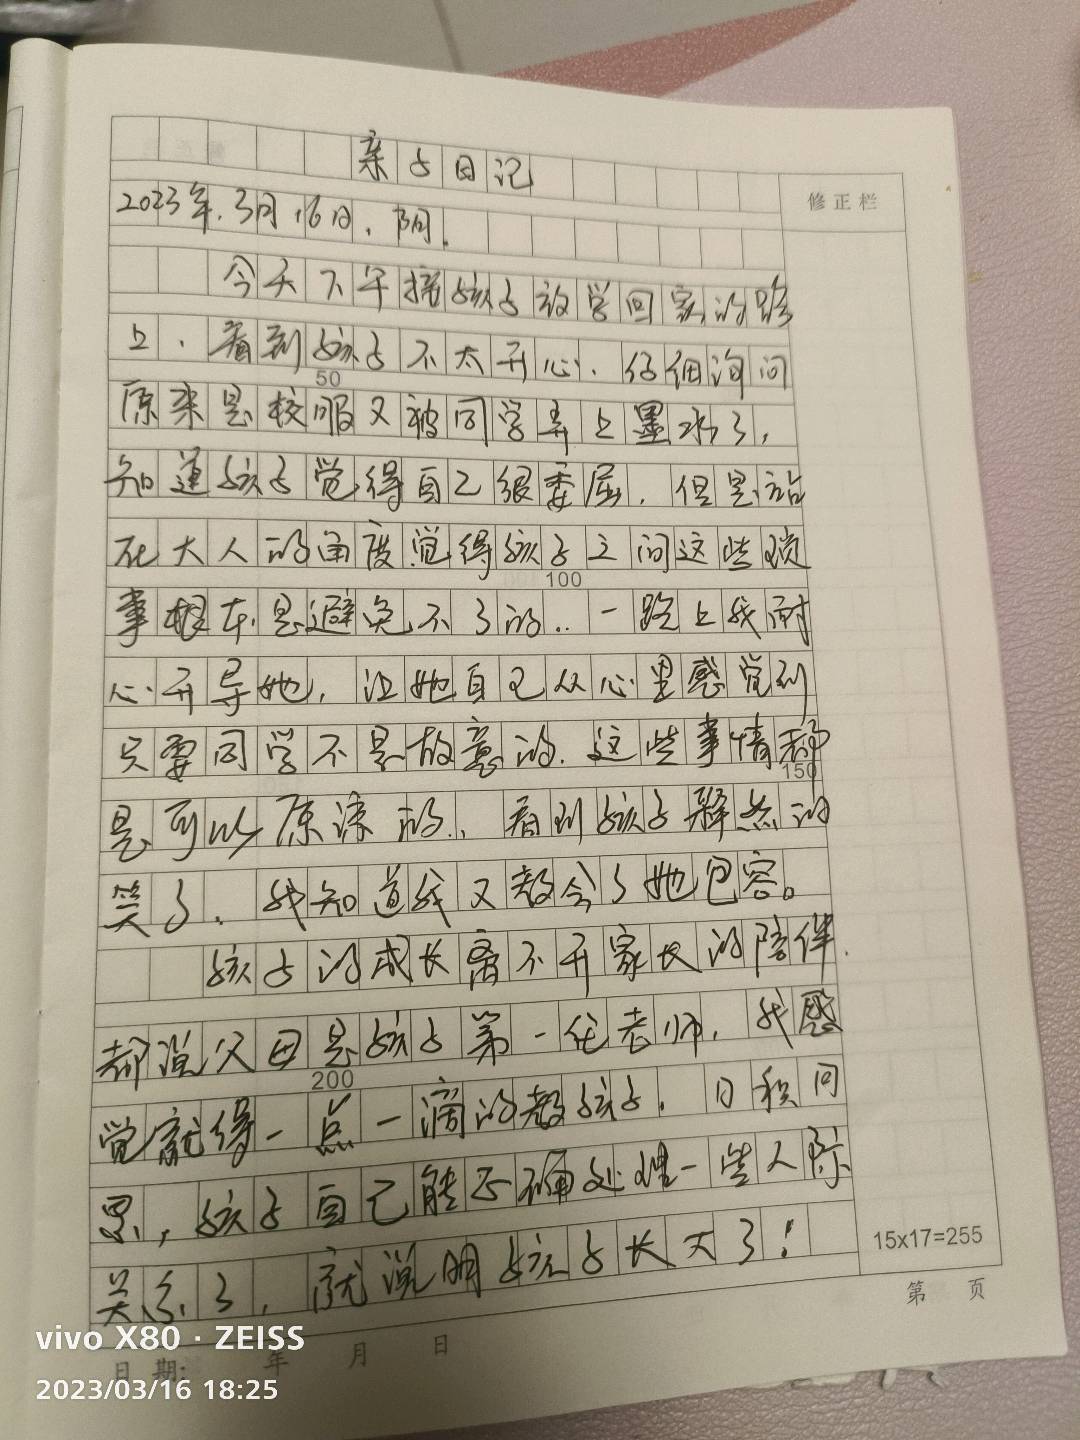 亲子日记
修正栏
2023年.3月16日.阴.
今天下午接孩子放学回家的路
上.看到孩子不太开心.仔细询问
50
原来是校服又被同学弄上墨水了,
知道孩子觉得自己很委屈.但是站
在大人的角度觉得孩子之间这些琐
100
事根本是避免不了的..一路上我耐
心开导她,让她自己从心里感觉到
只要同学不是故意的.这些事情都
150
是可以原谅的.看到孩子释然的
笑了.我知道我又教会了她包容。
孩子的成长离不开家长的陪伴.
都说父母是孩子第一任老师,我感
200
觉就得一点一滴的教孩子.日积月
累,孩子自己能正确处理一些人际
关系了,就说明孩子长大了!
15x17=255
第 页
日期: 年 月 日
vivo X80 · ZEISS
2023/03/16 18:25